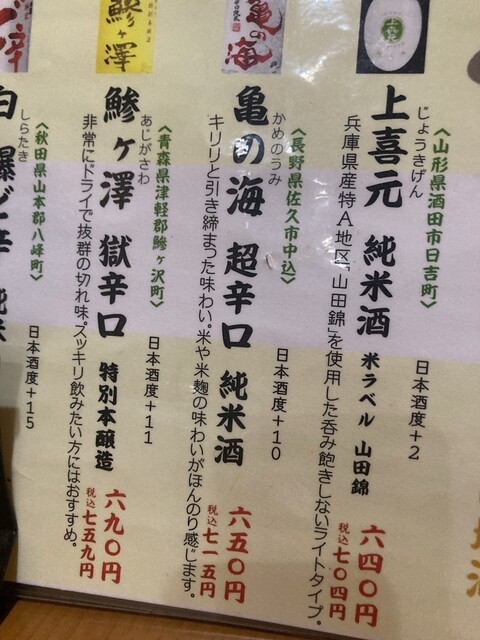 上喜元
じょうきげん
〈山形県酒田市日吉町〉
純米酒 米ラベル 山田錦
日本酒度+2
兵庫県産特A地区「山田錦」を使用した呑み飽きしないライトタイプ。
六四〇円
税込七〇四円
亀の海
亀の海
かめのうみ
〈長野県佐久市中込〉
超辛口 純米酒
日本酒度+10
キリリと引き締まった味わい。米や米麹の味わいがほんのり感じます。
六五〇円
税込七一五円
鯵ヶ澤
鯵ヶ澤
あじがさわ
〈青森県津軽郡鯵ヶ沢町〉
獄辛口 特別本醸造
日本酒度+11
非常にドライで抜群の切れ味。スッキリ飲みたい方にはおすすめ。
六九〇円
税込七五九円
白瀑ど辛 純米
しらたき
〈秋田県山本郡八峰町〉
日本酒度+15